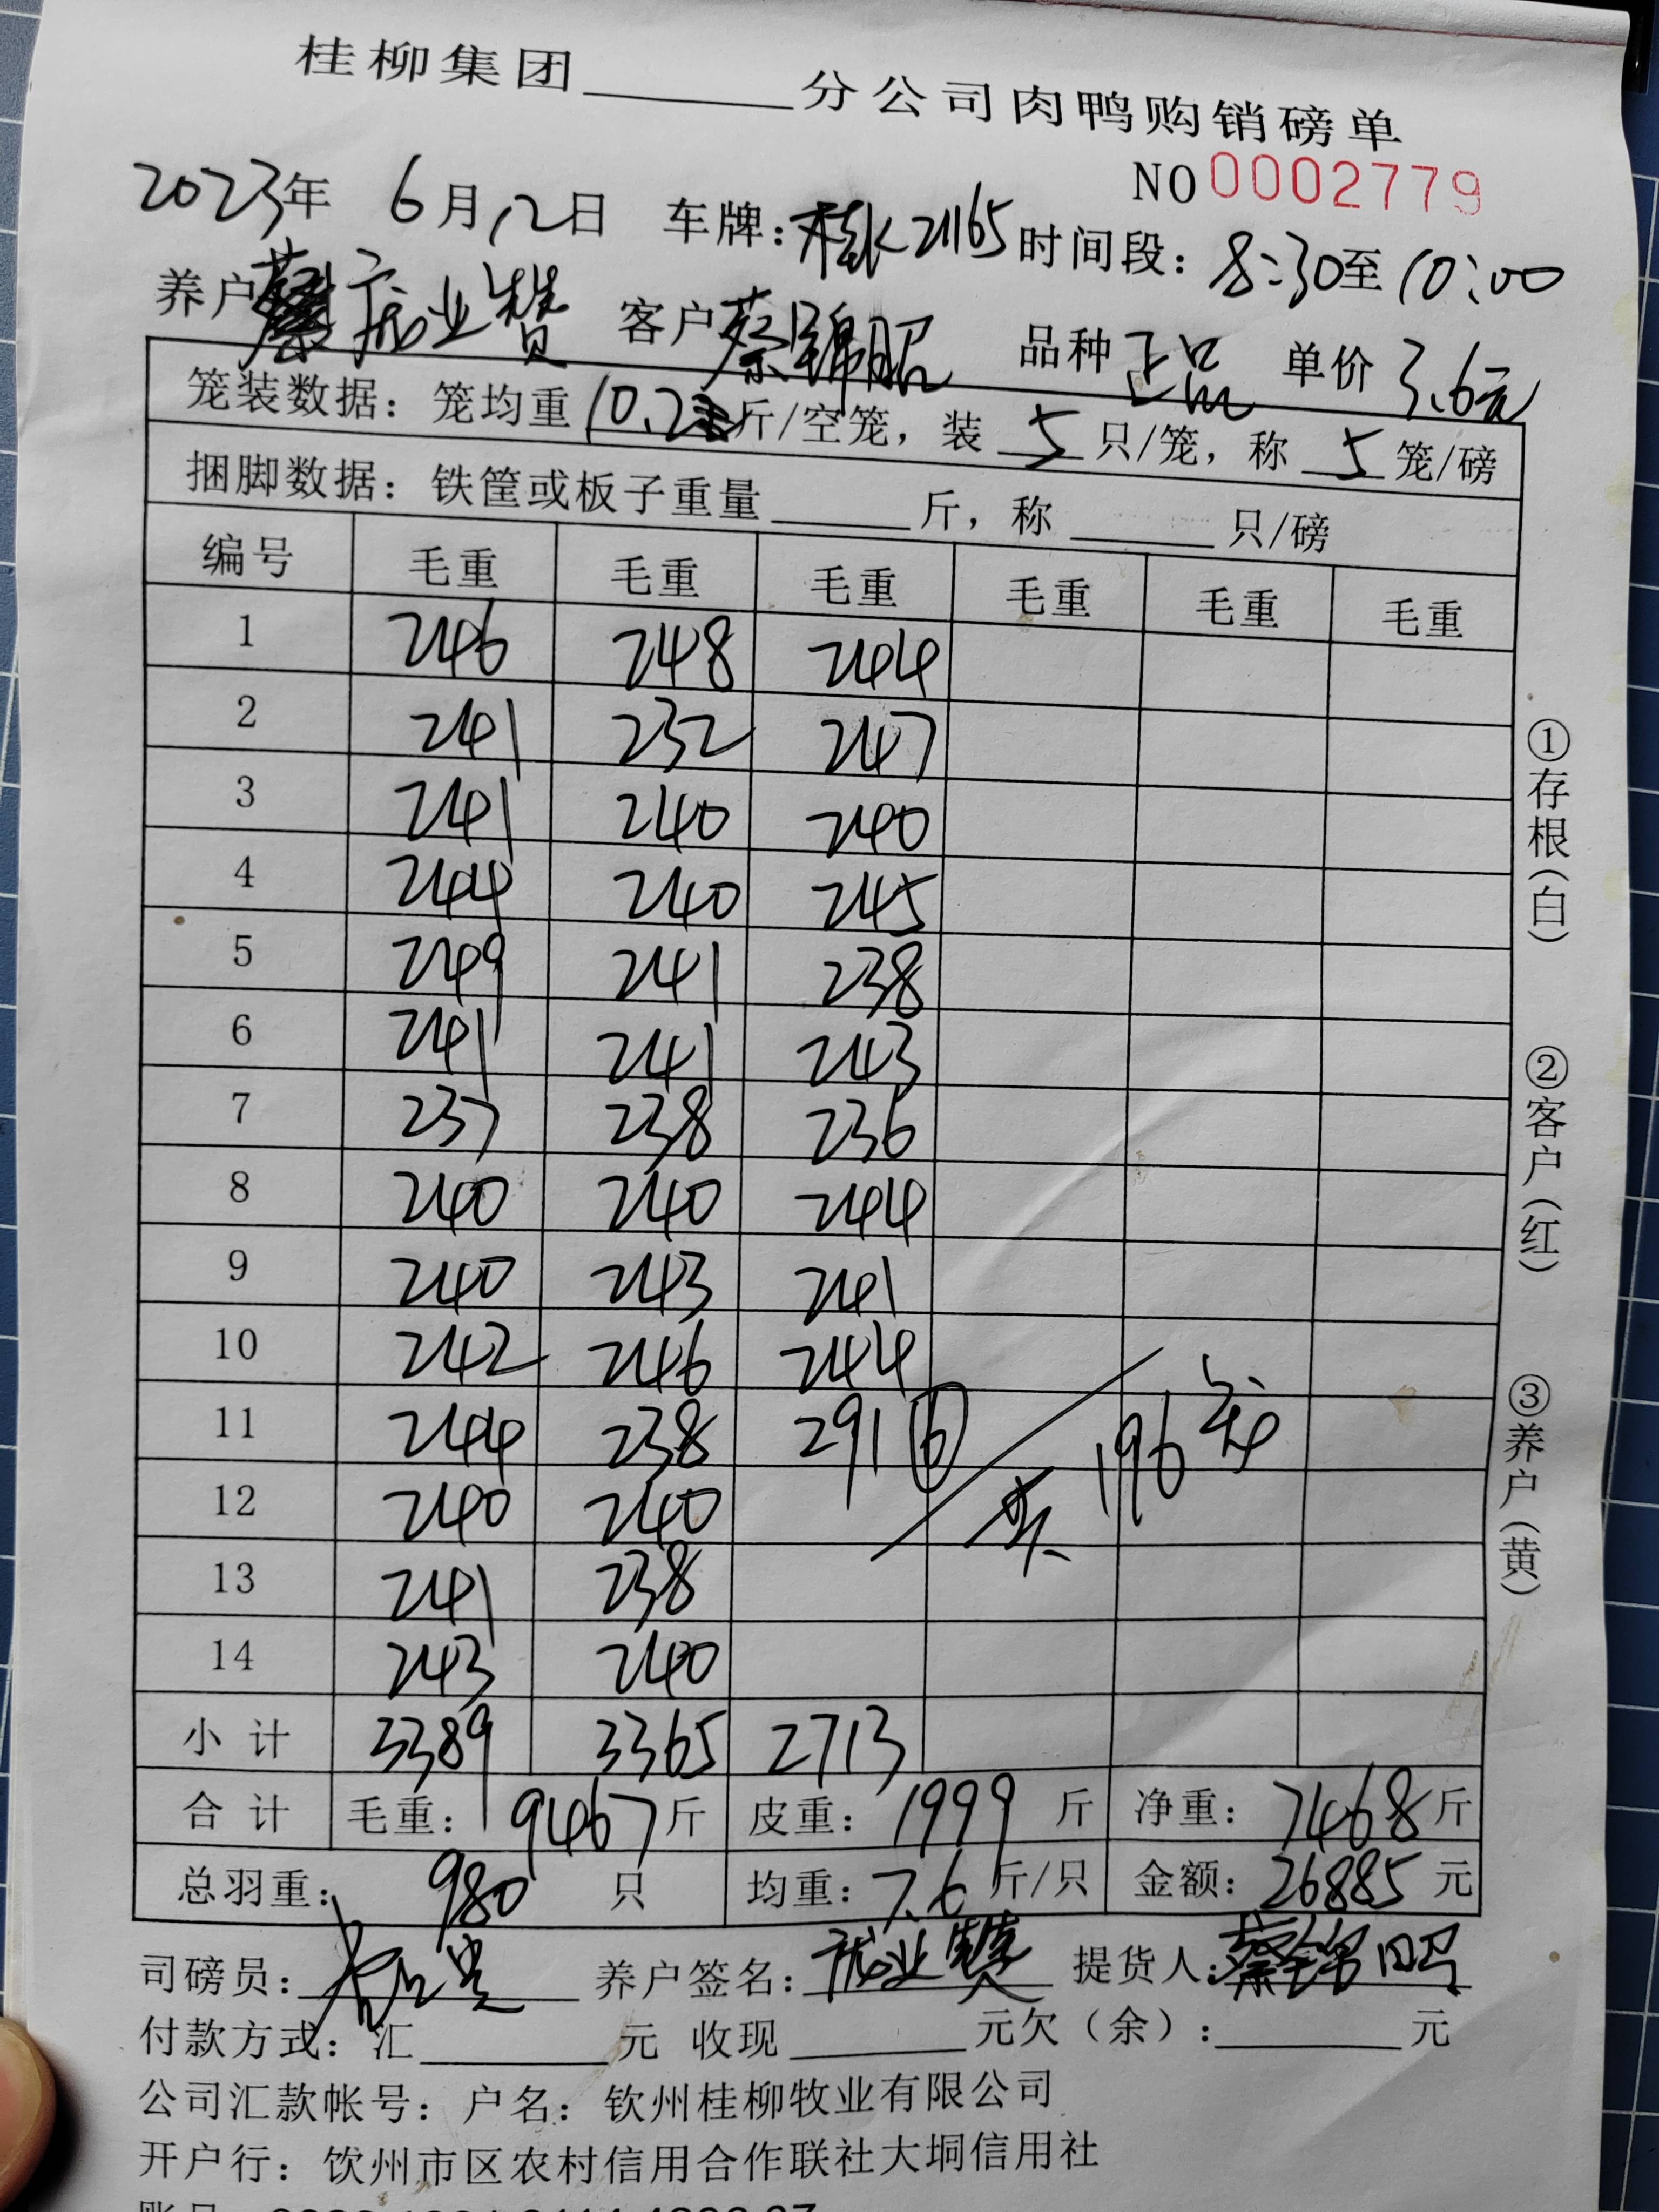 桂柳集团______分公司肉鸭购销磅单
NO 0002779
2023年 6月12日 车牌: 桂K21165 时间段: 8:30至10:00
养户 业赞 客户 蔡锦昭 品种 正品 单价 3.6元
笼装数据: 笼均重 10.2 斤/空笼, 装 5 只/笼, 称 5 笼/磅
捆脚数据: 铁筐或板子重量______斤, 称______只/磅
编号 毛重 毛重 毛重 毛重 毛重 毛重
1 246 248 244
2 241 232 247
3 241 240 240
4 244 240 245
5 249 241 238
6 241 241 243
7 237 238 236
8 240 240 244
9 240 243 241
10 242 246 244
11 244 238 291 ⑥ 196
12 240 240 共
13 241 238
14 243 240
小计 3389 3365 2713
合计 毛重: 9467斤 皮重: 1999 斤 净重: 7468斤
总羽重: 980 只 均重: 7.6 斤/只 金额: 26885 元
司磅员: 养户签名: 业赞 提货人: 蔡锦昭
付款方式: 汇______元 收现______元欠(余):______元
公司汇款帐号: 户名: 钦州桂柳牧业有限公司
开户行: 饮州市区农村信用合作联社大垌信用社
①存根(白)
②客户(红)
③养户(黄)